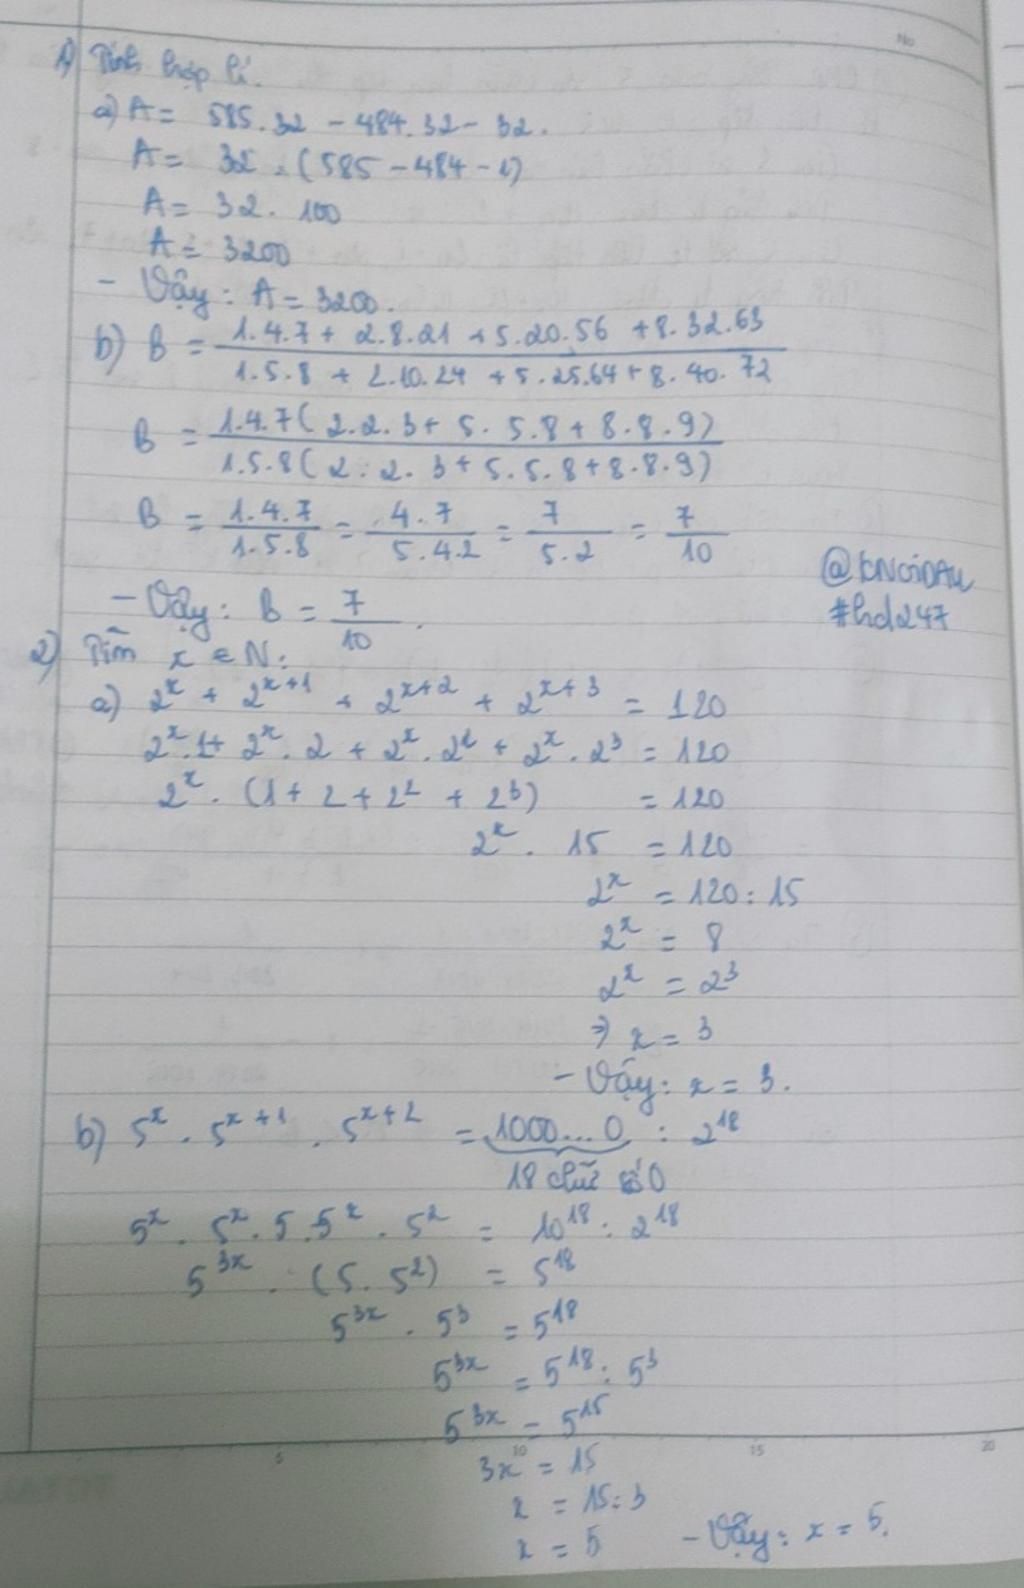 No
1) Tính hợp lí.
a) A = 585.32 - 484.32 - 32.
A = 32.(585 - 484 - 1)
A = 32. 100
A = 3200
- Vậy: A = 3200.
b) B = (1.4.7 + 2.8.21 + 5.20.56 + 8.32.63) / (1.5.8 + 2.10.24 + 5.25.64 + 8.40.72)
B = 1.4.7(2.2.3 + 5.5.8 + 8.8.9) / 1.5.8(2.2.3 + 5.5.8 + 8.8.9)
B = 1.4.7 / 1.5.8 = 4.7 / 5.4.2 = 7 / 5.2 = 7 / 10
@KNGiDAu
#hd247
- Vậy: B = 7 / 10.
2) Tìm x ∈ N:
a) 2^x + 2^(x+1) + 2^(x+2) + 2^(x+3) = 120
2^x.1 + 2^x.2 + 2^x.2^2 + 2^x.2^3 = 120
2^x.(1 + 2 + 2^2 + 2^3) = 120
2^x. 15 = 120
2^x = 120 : 15
2^x = 8
2^x = 2^3
⇒ x = 3
- Vậy: x = 3.
b) 5^x . 5^(x+1) . 5^(x+2) = 1000...0 : 2^18
18 chữ số 0
5^x . 5^x . 5 . 5^x . 5^2 = 10^18 : 2^18
5^3x . (5. 5^2) = 5^18
5^3x . 5^3 = 5^18
5^3x = 5^18 : 5^3
5^3x = 5^15
5 10 15 20
3x = 15
x = 15 : 3
x = 5 - Vậy: x = 5.